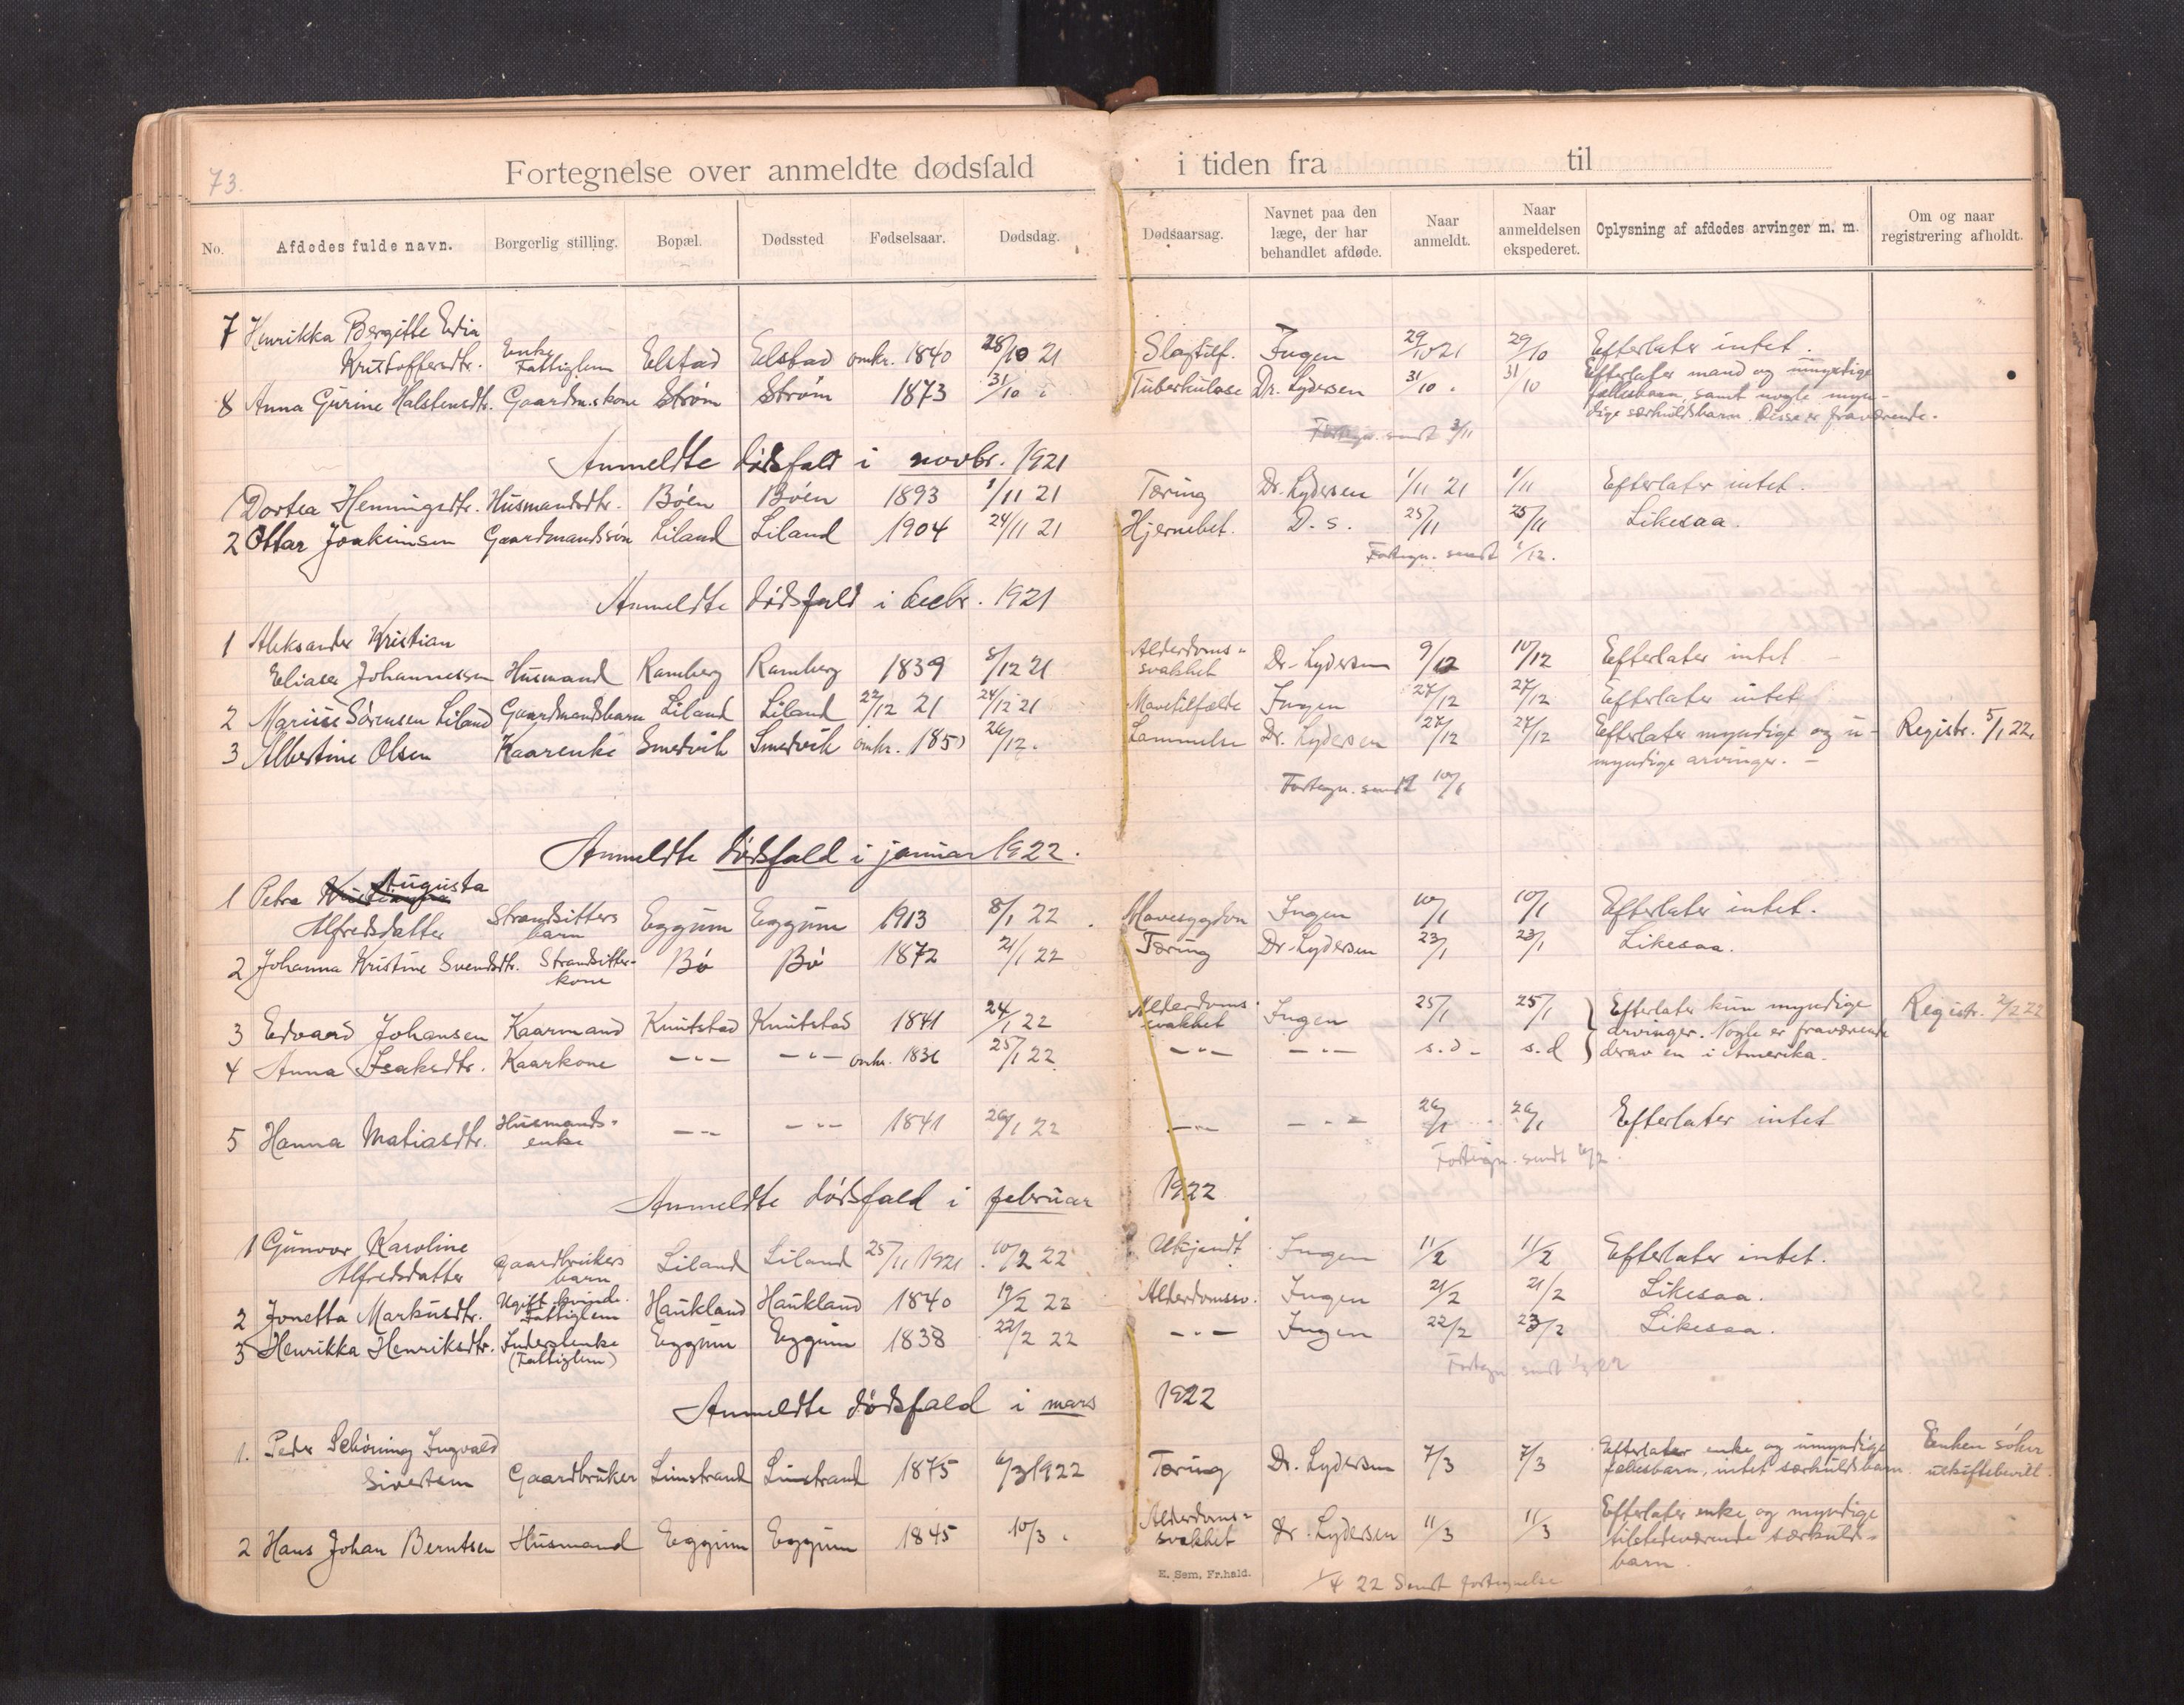 73.
Fortegnelse over anmeldte dødsfald i tiden fra til
No. Afdødes fulde navn. Borgerlig stilling. Bopæl. Dødssted Fødselsaar. Dødsdag. Dødsaarsag. Navnet paa den læge, der har behandlet afdøde. Naar anmeldt. Naar anmeldelsen ekspederet. Oplysning af afdødes arvinger m. m. Om og naar registrering afholdt.
7 Henrikka Bergitte Edia
Kristoffersdtr. Enke Fattiglem Elstad Elstad omkr. 1840 28/10 21 Slagtilf. Ingen 29/10 21 29/10 Efterlater intet.
8 Anna Gurine Halstensdtr. Gaardm.skone Strøm Strøm 1873 31/10 Tuberkulose Dr. Lydersen 31/10 . 31/10 Efterlater mand og umyndige
fællesbarn, samt nogle myn-
dige særkuldsbarn. Disse er fraværende.
Fortegn. sendt 3/11
Anmeldte dødsfald i novbr. 1921
1 Dortea Henningsdtr. Husmandsdtr. Bøen Bøen 1893 1/11 21 Tæring Dr. Lydersen 1/11 21 1/11 Efterlater intet.
2 Ottar Joakimsen Gaardmandssøn Liland Liland 1904 24/11 21 Hjernebet. D. s. 25/11 25/11 Likesaa.
Fortegn. sendt 1/12.
Anmeldte dødsfald i decbr. 1921
1 Aleksander Kristian
Eliaser Johannessen Husmand Ramberg Ramberg 1839 8/12 21 Alderdoms-svakhet Dr. Lydersen 9/12 10/12 Efterlater intet
2 Mariüs Sørensen Liland Gaardmandsbarn Liland Liland 22/12 21 24/12 21 Mavetilfælde Ingen 27/12 27/12 Efterlater intet
3 Albertine Olsen Kaarenke Smedvik Smedvik omkr. 185 26/12. Lammelse Dr. Lydersen 27/12 27/12 Efterlater myndige og u- Registr. 5/1 22.
myndige arvinger. –
Fortegn. sendt 10/1
Anmeldte dødsfald i januar 1922.
1 Petra Augusta
Alfredsdatter Strandsitters barn Eggum Eggum 1913 8/1 22 Mavesygdom Ingen 10/1 10/1 Efterlater intet.
2 Johanna Kristine Svendsdtr. Strandsitter-kone Bø Bø 1872 21/1 22 Tæring Dr. Lydersen 23/1 23/1 Likesaa.
3 Edvard Johansen Kaarmand Knutstad Knutstad 1841 24/1 22 Alderdoms-svakhet Ingen 25/1 25/1 Efterlater kun myndige Registr. 2/2 22
arvinger. Nogle er fraværende
4 Anna Isaksdtr. Kaarkone –"– –"– omkr. 1836 25/1 22 –"– –"– s.d. s.d derav en i Amerika.
5 Hanna Matiasdtr. Husmands-enke –"– –"– 1841 26/1 22 –"– –"– 26/1 26/1 Efterlater intet
Fortegn. sendt 6/2.
Anmeldte dødsfald i februar 1922
1 Gunvor Karoline
Alfredsdatter gaardbrukers barn Liland Liland 25/11 1921 10/2 22 Ukjendt Ingen 11/2 11/2 Efterlater intet.
2 Jonetta Markusdtr. Ugift kvinde. Fattiglem Haukland Haukland 1840 19/2 22 Alderdomssv. Ingen 21/2 21/2 Likesaa.
3 Henrikka Henriksdtr. Inderstenke (Fattiglem) Eggum Eggum 1838 22/2 22 –"– Ingen 22/2 23/2 Likesaa.
Fortegn. sendt 1/3 22
Anmeldte dødsfald i mars 1922
1. Peder Schøning Ingvald
Sivertsen Gaardbruker Limstrand Limstrand 1875 6/3 1922 Tæring Dr. Lydersen 7/3 7/3 Efterlater enke og umyndige Enken søker
fællesbarn, intet særkuldsbarn. utskiftebevill.
2 Hans Johan Berntsen Husmand Eggum Eggum 1845 10/3 . Alderdoms-svakhet Dr. Lydersen 11/3 11/3 Efterlater enke og myndige
tilstedeværende særkulds-
barn.
E. Sem, Fr.hald.
1/4 22 Sendt fortegnelse